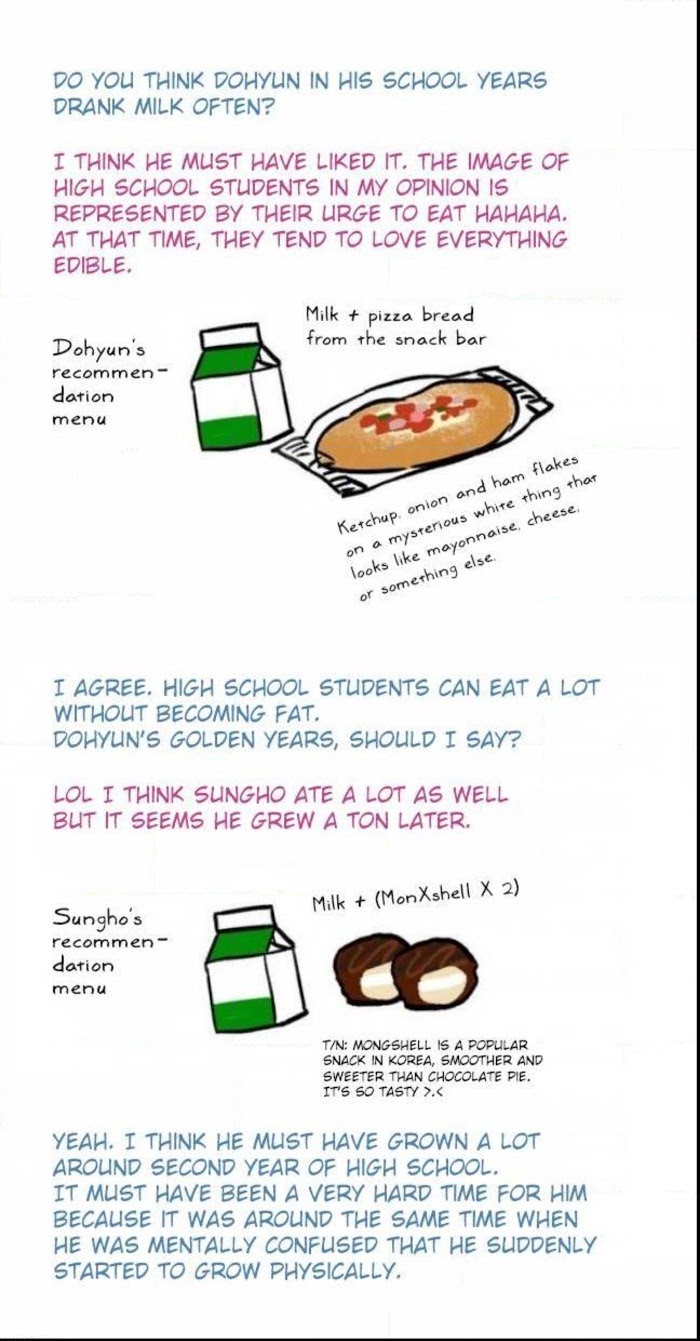 DO YOU THINK DOHYUN IN HIS SCHOOL YEARS
DRANK MILK OFTEN?
I THINK HE MUST HAVE LIKED IT. THE IMAGE OF
HIGH SCHOOL STUDENTS IN MY OPINION IS
REPRESENTED BY THEIR URGE TO EAT HAHAHA.
AT THAT TIME, THEY TEND TO LOVE EVERYTHING
EDIBLE.
Milk + pizza bread
from the snack bar
Dohyun's
recommen-
dation
menu
Ketchup, onion and ham flakes
on a mysterious white thing that
looks like mayonnaise, cheese,
or something else.
I AGREE. HIGH SCHOOL STUDENTS CAN EAT A LOT
WITHOUT BECOMING FAT.
DOHYUN'S GOLDEN YEARS, SHOULD I SAY?
LOL I THINK SUNGHO ATE A LOT AS WELL
BUT IT SEEMS HE GREW A TON LATER.
Milk + (MonXshell X 2)
Sungho's
recommen-
dation
menu
T/N: MONGSHELL IS A POPULAR
SNACK IN KOREA, SMOOTHER AND
SWEETER THAN CHOCOLATE PIE.
IT'S SO TASTY >.<
YEAH. I THINK HE MUST HAVE GROWN A LOT
AROUND SECOND YEAR OF HIGH SCHOOL.
IT MUST HAVE BEEN A VERY HARD TIME FOR HIM
BECAUSE IT WAS AROUND THE SAME TIME WHEN
HE WAS MENTALLY CONFUSED THAT HE SUDDENLY
STARTED TO GROW PHYSICALLY.